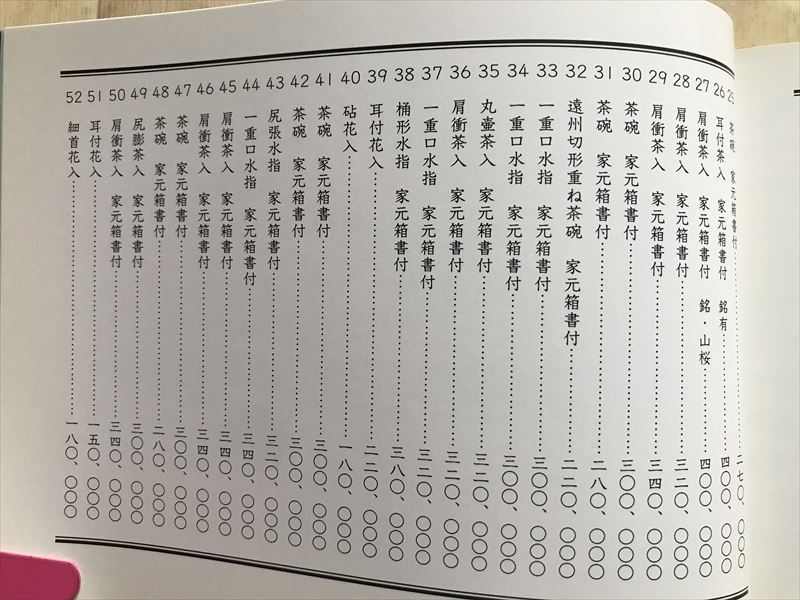 25 茶碗 家元箱書付……………二七〇、〇〇〇
26 耳付茶入 家元箱書付 銘有……………四〇〇、〇〇〇
27 肩衝茶入 家元箱書付 銘・山桜……………四〇〇、〇〇〇
28 肩衝茶入 家元箱書付……………三二〇、〇〇〇
29 肩衝茶入 家元箱書付……………三四〇、〇〇〇
30 茶碗 家元箱書付……………三〇〇、〇〇〇
31 茶碗 家元箱書付……………二八〇、〇〇〇
32 遠州切形重ね茶碗 家元箱書付……………二二〇、〇〇〇
33 一重口水指 家元箱書付……………三〇〇、〇〇〇
34 一重口水指 家元箱書付……………三〇〇、〇〇〇
35 丸壷茶入 家元箱書付……………三二〇、〇〇〇
36 肩衝茶入 家元箱書付……………三二〇、〇〇〇
37 一重口水指 家元箱書付……………三二〇、〇〇〇
38 桶形水指 家元箱書付……………三八〇、〇〇〇
39 耳付花入……………二二〇、〇〇〇
40 砧花入……………一八〇、〇〇〇
41 茶碗 家元箱書付……………三〇〇、〇〇〇
42 茶碗 家元箱書付……………三〇〇、〇〇〇
43 尻張水指 家元箱書付……………三二〇、〇〇〇
44 一重口水指 家元箱書付……………三四〇、〇〇〇
45 肩衝茶入 家元箱書付……………三四〇、〇〇〇
46 肩衝茶入 家元箱書付……………三四〇、〇〇〇
47 茶碗 家元箱書付……………三〇〇、〇〇〇
48 茶碗 家元箱書付……………二八〇、〇〇〇
49 尻膨茶入 家元箱書付……………三〇〇、〇〇〇
50 肩衝茶入 家元箱書付……………三四〇、〇〇〇
51 耳付花入……………一五〇、〇〇〇
52 細首花入……………一八〇、〇〇〇